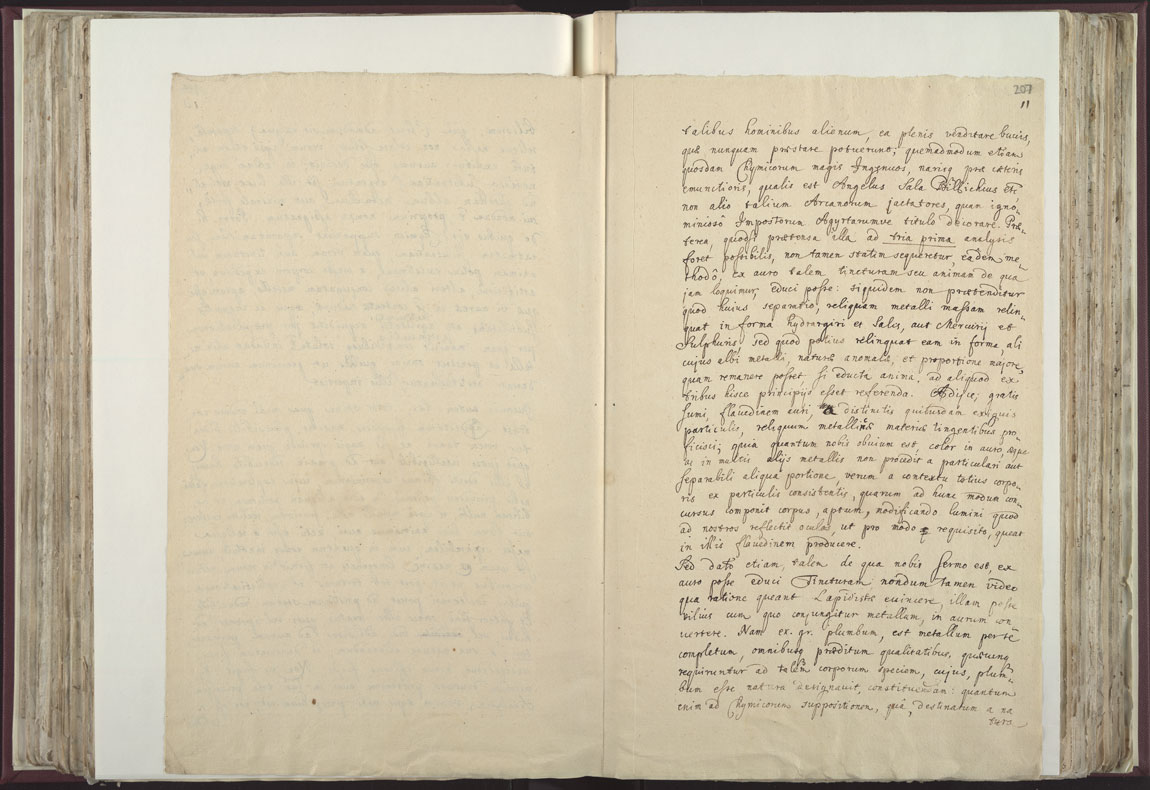 207
11
talibus hominibus alienum, ea plenis venditare buccis,
quæ nunquam præstare potuerunt; quemadmodum etiam
quosdam Chymicorum magis Ingenuos, narisq præ cæteris
emunctioris, qualis est Angelus Sala Billichius etc
non alio talium Arcanorum jactatores, quam igno-
miniosô Impostorum Agyrtarumve titulo decorare. Præ-
terea, quodsi prætensa illa ad tria prima analysis
foret possibilis, non tamen statim sequeretur, eâdem me-
thodô, ex auro talem tincturam seu animam de qua
jam loquimur, educi posse: siquidem non prætenditur
quod huius separatio, reliquam metalli massam relin-
quat in forma hydrargiri et Salis, aut Mercurij et
Sulphuris, sed quod potius relinquat eam in forma, ali
cujus albi metalli, naturæ anomalæ, et proportione majore,
quam remanere posset, si educta anima, ad aliquod ex
tribus hisce principijs esset referenda. Adisce, gratis
sumi, flavedinem auri, a distinctis quibusdam exiguis
particulis, reliquum metallinæ materiæ tingentibus pro-
ficisci; quia quantum nobis obvium est, color in auro, sicque
in multis alijs metallis non procedit a particulari aut
separabili aliqua portione, verum a contextu totius corpo-
ris ex particulis consistentis, quarum ad hunc modum con-
cursus componit corpus, aptum, modificando lumini quod
ad nostros reflectit oculos, ut pro modo requisito, queat
in illis flavedinem producere.
Sed dato etiam, talem de qua nobis sermo est, ex
auro posse educi Tincturam nondum tamen video
qua ratione queant Lapidistæ evincere, illam posse
vilius cum quo conjungitur metallum, in aurum con-
vertere. Nam ex. gr. plumbum, est metallum per se
completum, omnibusq præditum qualitatibus, quæcunq
requiruntur ad talem corporum speciem, cujus, plum-
bum esse natura assignavit, constituendam: quantum
enim ad Chymicorum suppositionem, quâ, destinatum a na
tura